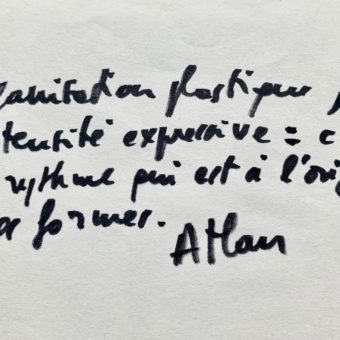 ganisation plastique p
tensité expressive = c
rythme qui est à l'ori
es formes.
Atlan